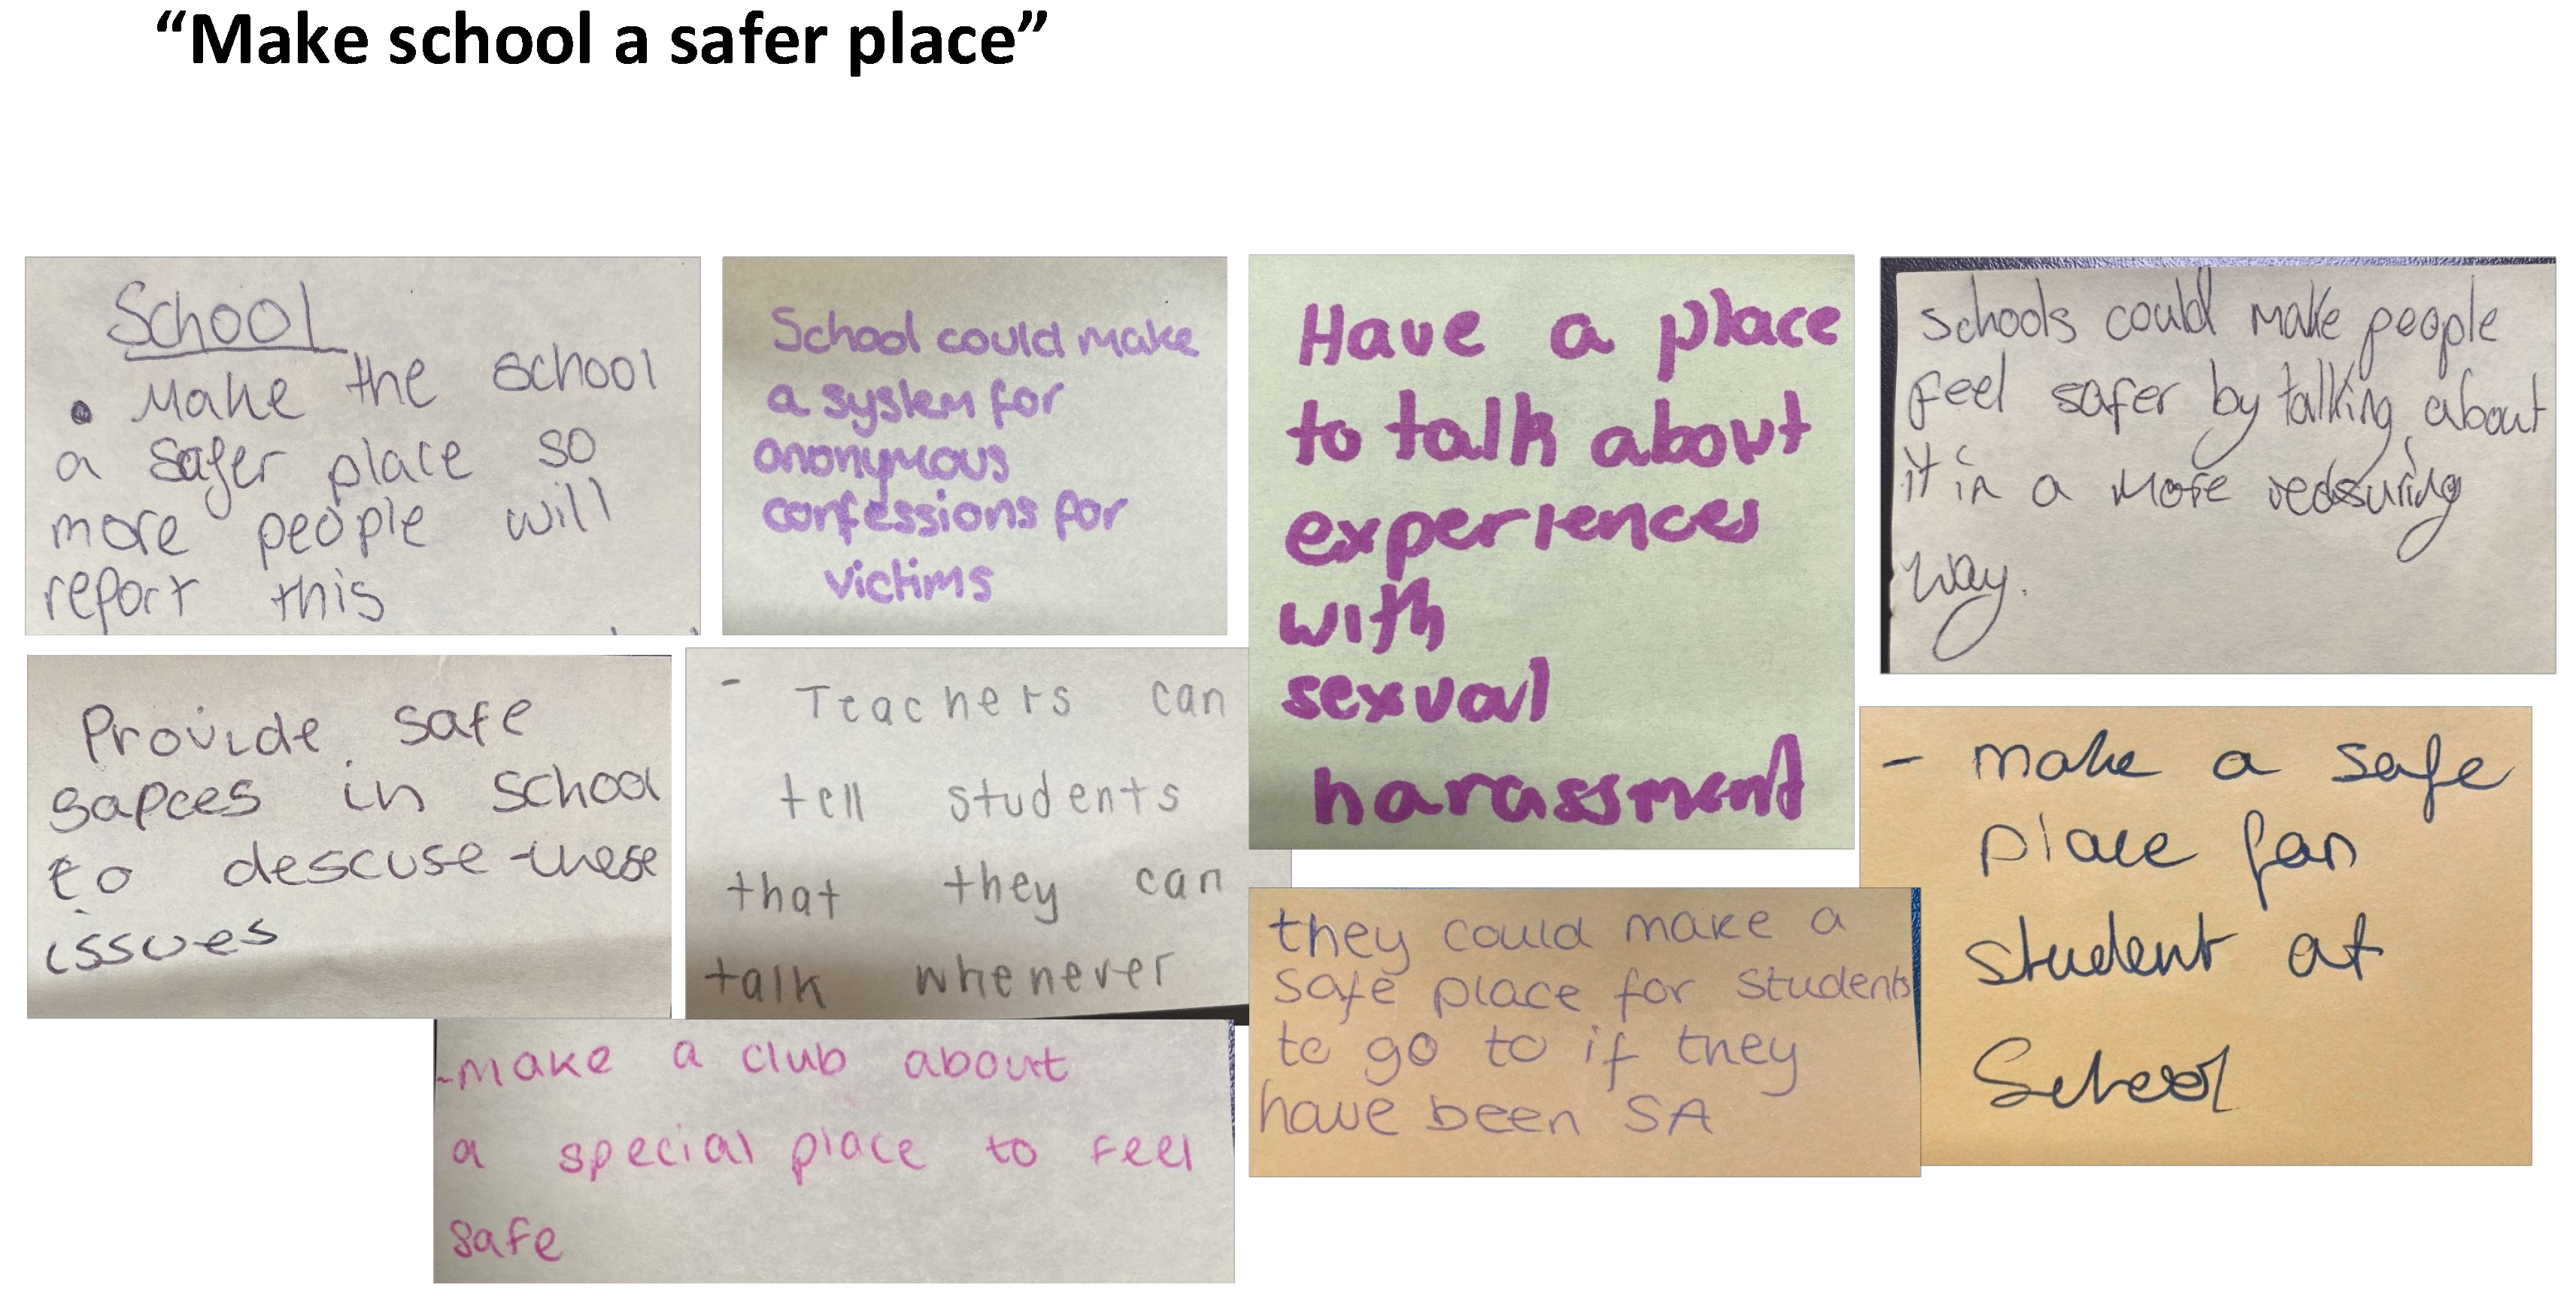 “Make school a safer place”
School
• Make the school
a safer place so
more people will
report this
School could make
a system for
anonymous
confessions for
victims
Have a place
to talk about
experiences
with
sexual
harassment
schools could make people
feel safer by talking about
it in a more reassuring
way.
Provide safe
sapces in school
to descuse these
issues
- Teachers can
tell students
that they can
talk whenever
- make a safe
place for
student at
School
they could make a
safe place for students
to go to if they
have been SA
-make a club about
a special place to feel
safe